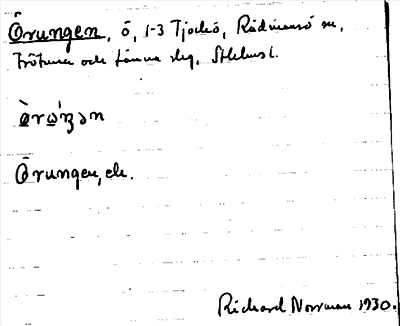 Örungen, ö, 1-3 Tjockö, Rådmansö sn,
Frötuna och Länna slg, Sthlms l.
ö̀rώŋən
Örungen, ek.
Richard Norrman 1930.